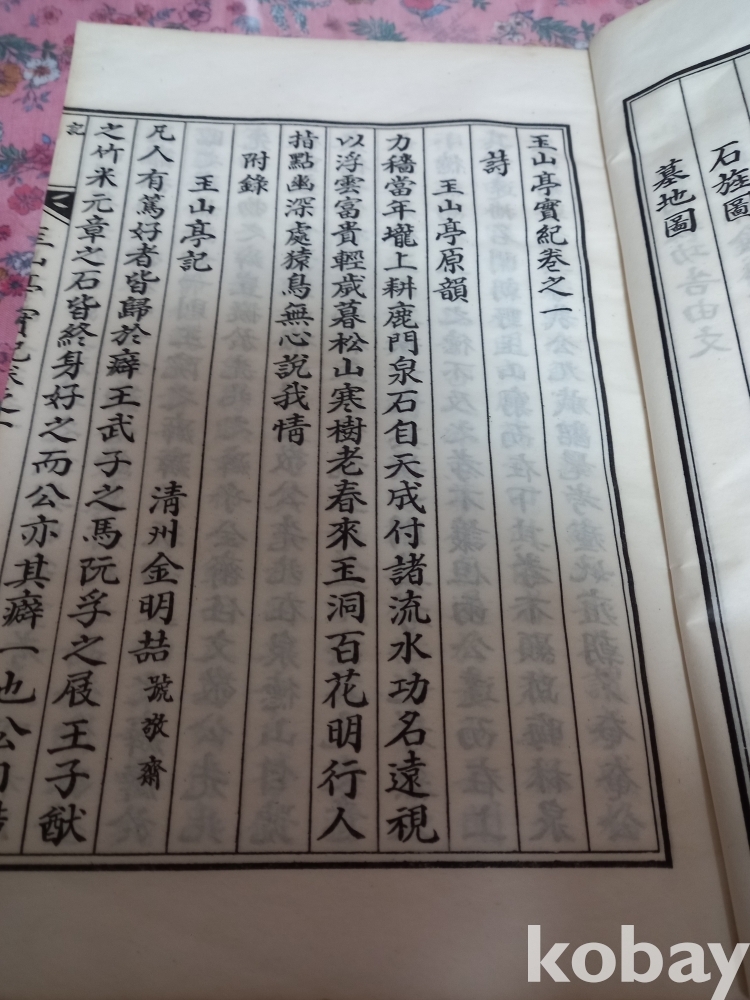 石旌圖
墓地圖
玉山亭實紀卷之一
詩
玉山亭原韻
力穡當年壠上耕鹿門泉石自天成付諸流水功名遠視
以浮雲富貴輕歲暮松山寒樹老春來玉洞百花明行人
指點幽深處猿鳥無心說我情
附錄
玉山亭記
清州金明喆號敬齋
凡人有篤好者皆歸於癖王武子之馬阮孚之屐王子猷
之竹米元章之石皆終身好之而公亦其癖一也公
記
kobay